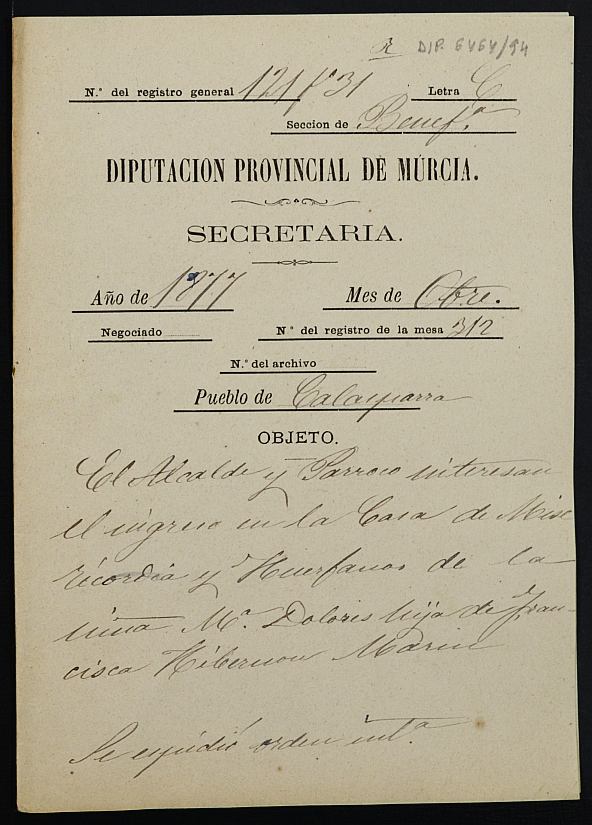 R DIP. 6464/94
N.º del registro general 121 f.º 31 Letra C
Seccion de Benef.ª
DIPUTACION PROVINCIAL DE MURCIA.
SECRETARIA.
Año de 1877 Mes de Obre.
Negociado N.º del registro de la mesa 312
N.º del archivo
Pueblo de Calasparra
OBJETO.
El Alcalde y Parroco interesan
el ingreso en la Casa de Mise
ricordia y Huerfanos de la
niña M.ª Dolores hija de Fran-
cisca Hibernon Marin
Se espidió orden int.ª